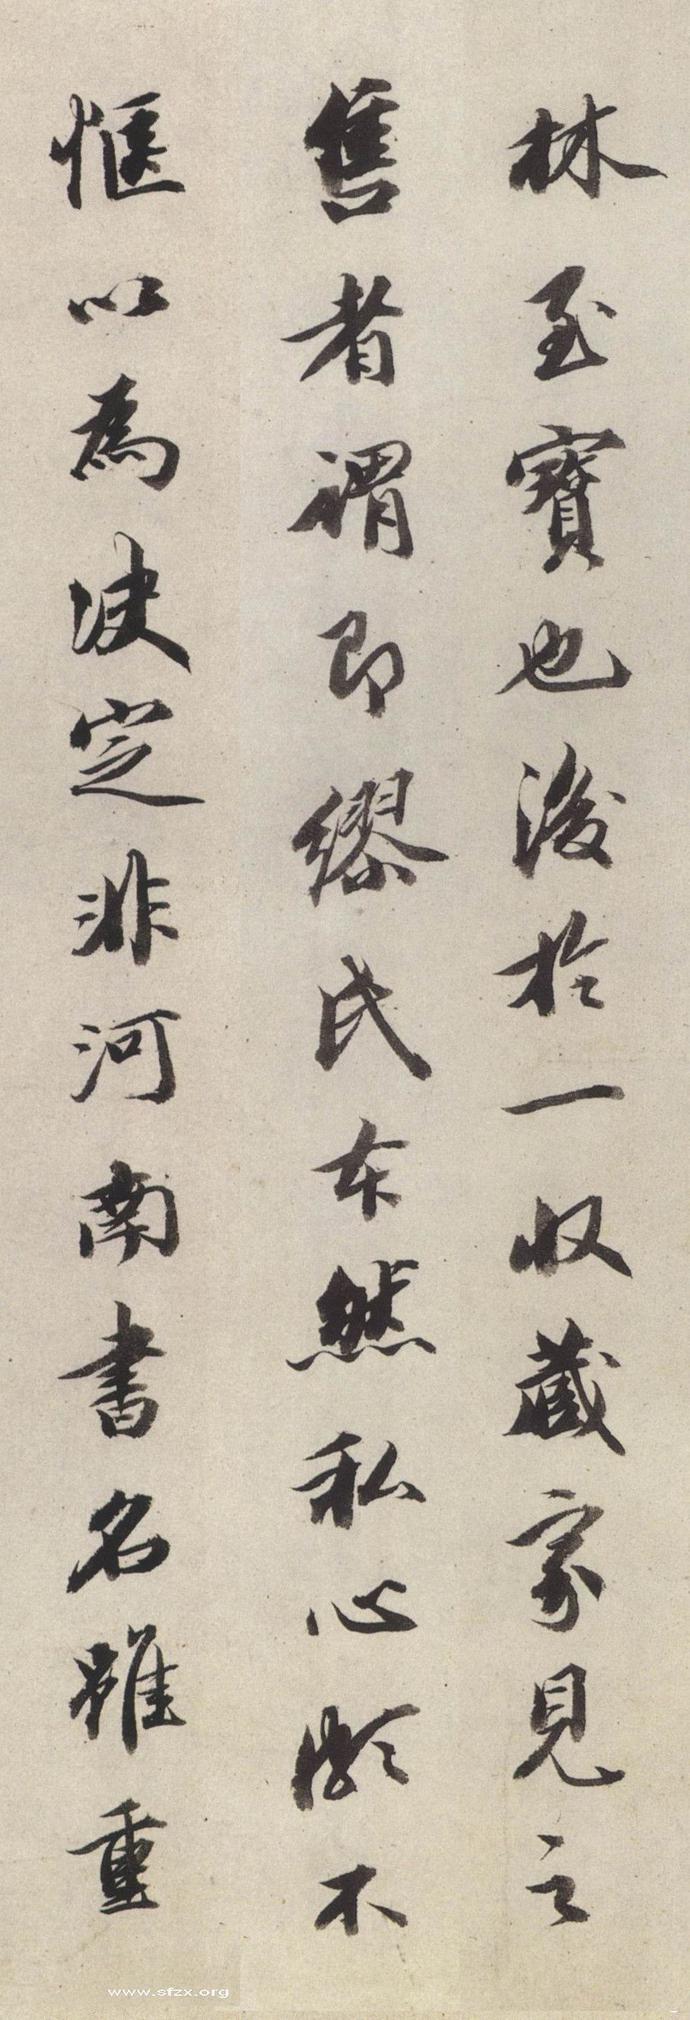 林至寶也後於一收藏家見之
售者謂即繆氏本然私心頗不
愜以為決定非河南書名雖重
www.sfzx.org